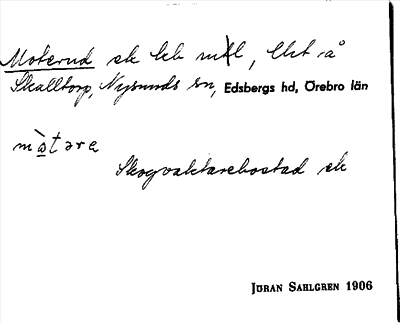 Moterud ek lek utl, Ekt rå
Skalltorp, Nysunds sn, Edsbergs hd, Örebro län
mo̱tare
Skogvaktarebostad ek
JÖRAN SAHLGREN 1906